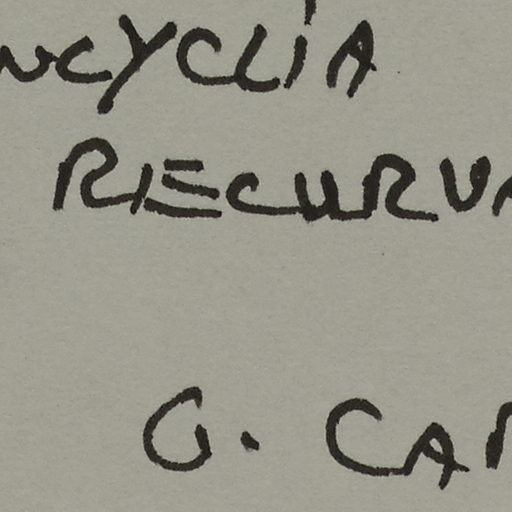 NCYCLIA
RECURVA
G. CA